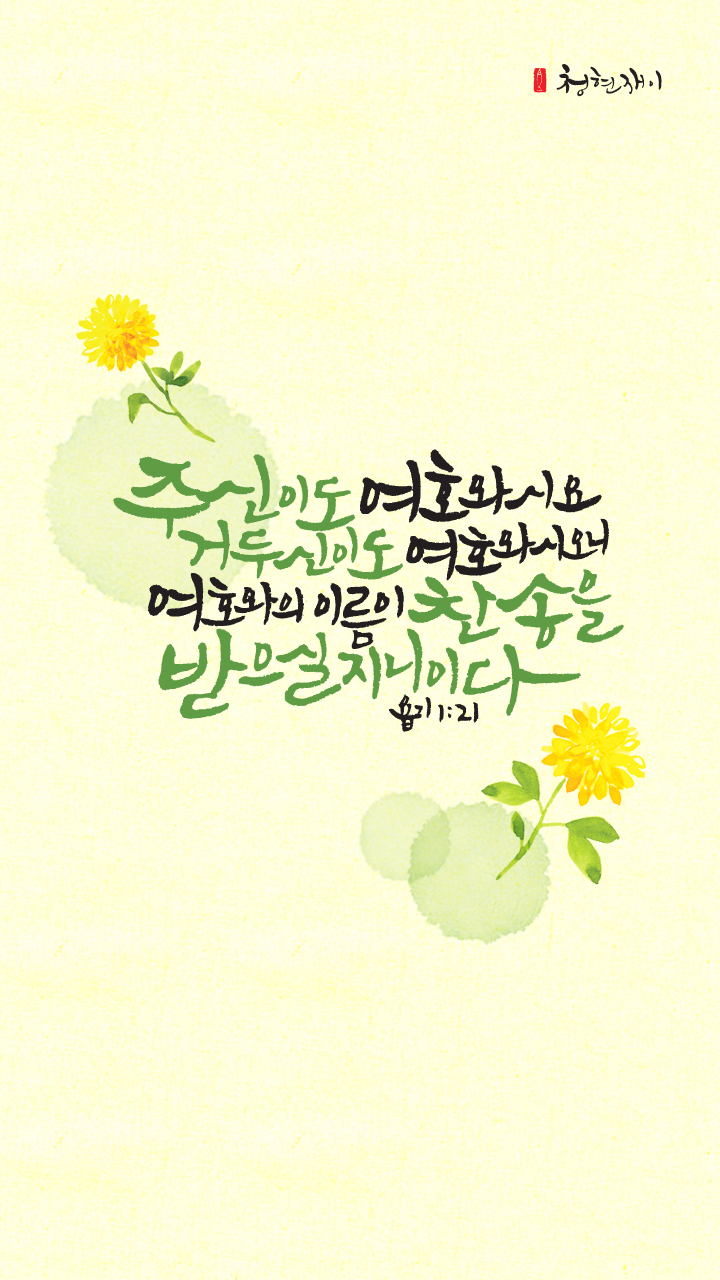 청현재이
주신이도 여호와시요
거두신이도 여호와시오니
여호와의 이름이 찬송을
받으실지니이다
욥기 1:21